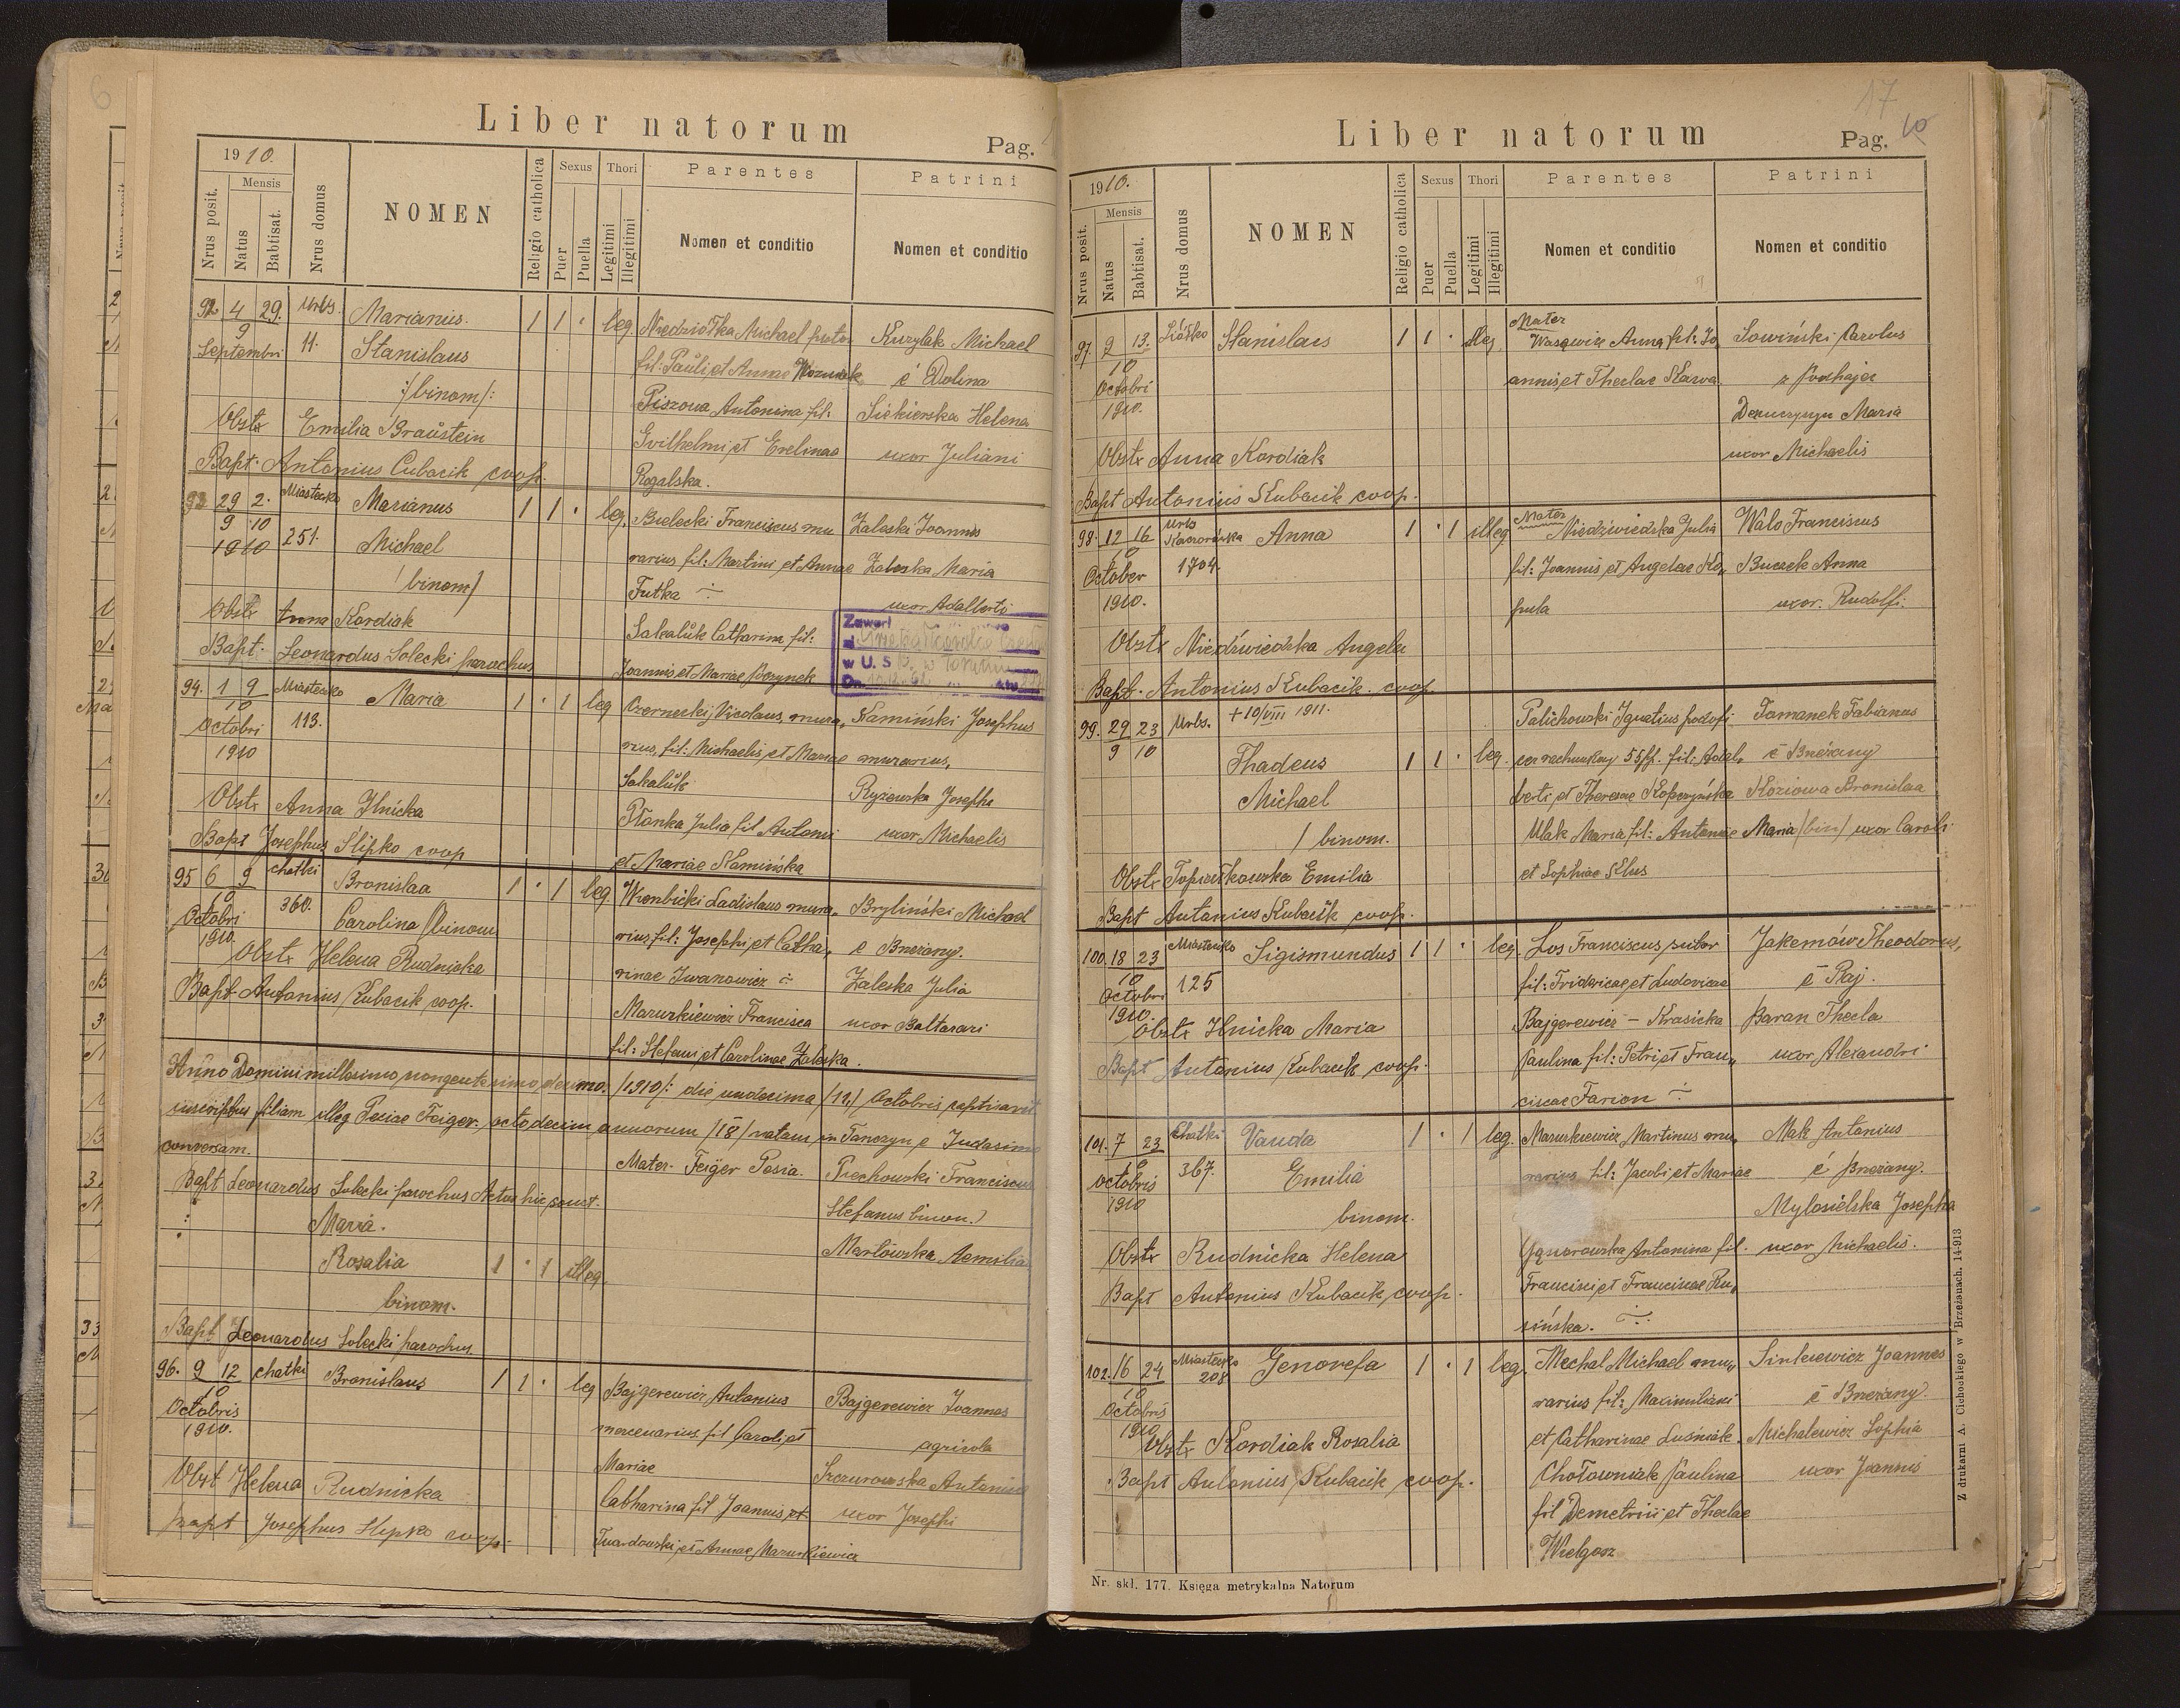 Liber natorum
Pag.
1910.
Nrus posit.
Mensis
Natus
Babtisat.
Nrus domus
NOMEN
Religio catholica
Sexus
Puer
Puella
Thori
Legitimi
Illegitimi
Parentes
Nomen et conditio
Patrini
Nomen et conditio
92 4 29. Urbs. Marianus. 1 1 · leg. Niedziółka Michael Kurylak Michael
9
Septembri 11. Stanislaus fil: Pauli et Annae è Dolina
/:binom/: Piszova Antonina fil: Siekierska Helena
Obstx Emilia Braustein Gvilhelmi et Evelinae uxor Juliani
Bapt: Antonius Cubacik coop. Rogalska.
93 29 2. Miasteczko Marianus 1 1 · leg. Bielecki Franciscus mu Zaleski Joannes
9 10
1910 251. Michael rarius fil: Martini et Annae Zaleska Maria
/binom/ Futka uxor Adalberti
Obstx Anna Kordiak Sakaluk Catharina fil:
Bapt. Leonardus Solecki parochus Joannis et Mariae
w U. S
94. 1 9 Miasteczko Maria 1 · 1 leg Czernecki Nicolaus, mura„ Kamiński Josephus
10
Octobri 113. rius, fil: Michaelis et Mariae murarius,
1910 Sakaluk Ryżewska Josepha
Obstx Anna Ilnicka Płonka Julia fil Antoni uxor Michaelis
Bapt Josephus Slipko coop et Mariae Kamińska
95 6 9 chatki Bronislaa 1 · 1 leg. Wrombicki Ladislaus mura„ Bryliński Michael
10
Octobri 360. Carolina /binom rius fil: Josephi et Catha„ è Brzeżany.
1910.
Obstx Helena Rudnicka rinae Iwanowicz Zaleska Julia
Bapt Antonius Kubacik coop. Mazurkiewicz Francisca uxor Baltasari
fil: Stefani et Carolinae Zaleska.
Anno Domini millesimo nongentesimo decimo. /1910/: die undecima /11/ Octobris baptisavit
filiam illeg Pesiae Feiger, octodecim annorum /18/ natam, in Tarczyn e Judaismo
conversam. Mater. Feiger Pesia. Piechowski Franciscus
Bapt Leonardus Solecki parochus Stefanus binom.)
Maria. Marłówska Aemilia
Rosalia 1 · 1 illeg.
binom.
Bapt Leonardus Solecki parochus
96. 9 12 chatki Bronislaus 1 1 · leg Bajgerewicz Antonius Bajgerewicz Joannes
10
Octobris mercenarius fil Caroli et agricola
1910. Mariae Szczurowska Antonina
Obst Helena Rudnicka Catharina fil Joannis et uxor Josephi
Bapt Josephus Slipko coop. Twardowski et Annae Mazurkiewicz
17
10
Liber natorum
Pag.
1910.
Nrus posit.
Mensis
Natus
Babtisat.
Nrus domus
NOMEN
Religio catholica
Sexus
Puer
Puella
Thori
Legitimi
Illegitimi
Parentes
Nomen et conditio
Patrini
Nomen et conditio
97. 9 13. Stanislaus 1 1 · illeg Mater Anna fil: Jo Łowiński Carolus
10
Octobri annis et Theclae z Podhajce
1910. Maria
Obstx Anna Kordiak uxor Michaelis
Bapt Antonius Kubacik coop.
98. 12 16 Urbs Anna 1 · 1 illeg Mater Niedzwiedzka Julia Walo Franciscus
10
October 1704. fil: Joannis et Angelae Ko„ Buczek Anna
1910. pula uxor. Rudolfi.
Obstx Niedzwiedzka Angela
Bapt. Antonius Kubacik. coop
99. 29 23 Urbs. + 10/VIII 1911. Palichowski Ignatius podofi Tomanek Fabianus
9 10
Thadeus 1 1 · leg. cer rachunkowy 55pp. fil: Adal„ è Brzeżany
Michael berti et Theresae Kopczyńska Koziowa Bronislaa
/ binom. Ulak Maria fil: Antoniae Maria /bin/ uxor Caroli
Obstx Emilia et Sophiae Klus
Bapt Antonius Kubacik coop.
100. 18 23 Miasteczko Sigismundus 1 1 · leg. Los Franciscus, sutor Jakemów Theodorus,
10
Octobri 125 fil: Fridericae et Ludovicae è Raj.
1910.
Obstx Ilnicka Maria Bajgerewicz – Krasicka Baran Thecla
Bapt Antonius Kubacik coop. Paulina fil: Petri et Fran„ uxor Alexandri
ciscae Farion
101. 7 23 Chatki Vanda 1 · 1 leg. Mazurkiewicz Martinus mu„ Mak Antonius
10
Octobris 367. Emilia rarius fil: Jacobi et Mariae è Brzeżany.
1910
binom. Mylosielska Josepha
Obstx Rudnicka Helena Antonina fil. uxor Michaelis.
Bapt Antonius Kubacik coop. Francisci et Franciscae Ru„
sińska.
102. 16 24 Miasteczko Genovefa 1 · 1 leg. Mechal Michael mu„ Sinkiewicz Joannes
10 208
Octobris rarius fil: Maximiliani è Brzeżany.
1910
Obstx Kordiak Rosalia et Catharinae Luśniak. Michalewicz Sophia
Bapt Antonius Kubacik coop. Chołowniak Paulina uxor Joannis
fil Demetrii et Theclae
Wielgosz
Z drukarni A. Cichockiego w Brzeżanach. 14-913
Nr. skł. 177. Księga metrykalna Natorum